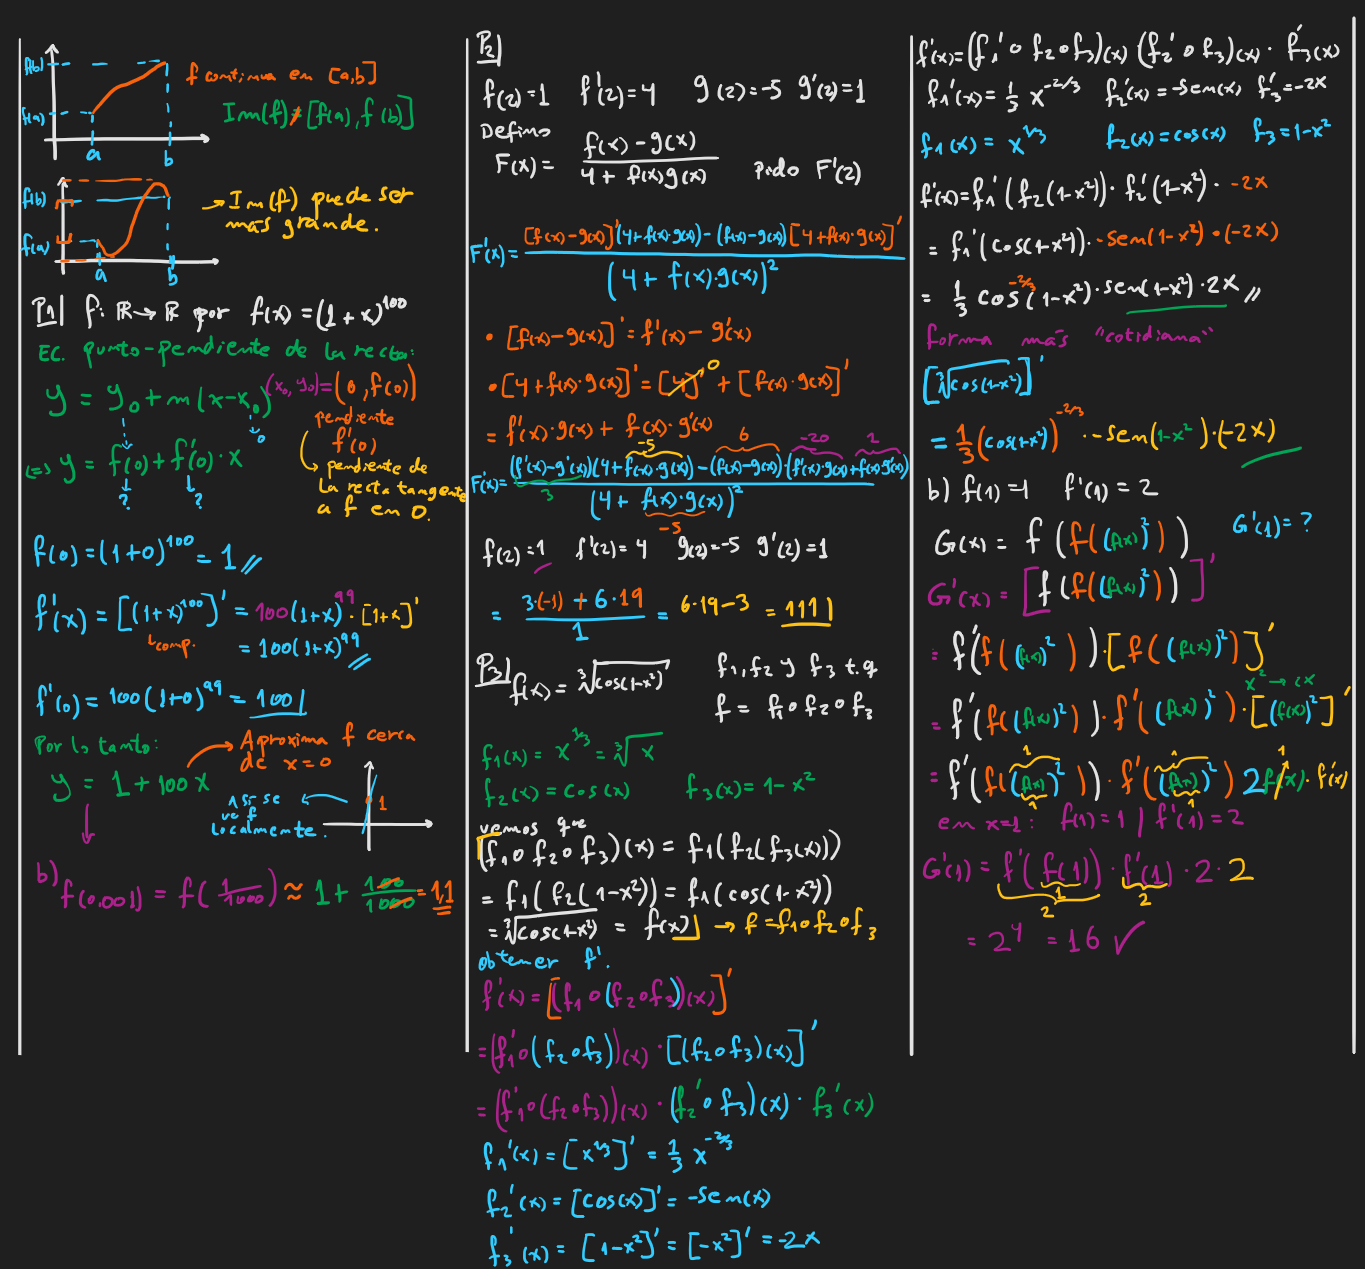 f(b)
f(a)
a b
f continua en [a,b]
Im(f) ≠ [f(a), f(b)]
f(b)
f(a)
a b
→ Im(f) puede ser
más grande.
P1| f: ℝ→ℝ por f(x) = (1+x)^100
EC. punto-pendiente de la recta:
y = y₀ + m(x-x₀) (x₀, y₀) = (0, f(0))
pendiente
f'(0)
→ pendiente de
la recta tangente
a f en 0.
0
<=> y = f(0) + f'(0)·x
? ?
f(0) = (1+0)^100 = 1 //
f'(x) = [(1+x)^100]' = 100(1+x)^99 · [1+x]'
↳comp.
= 100(1+x)^99 //
f'(0) = 100(1+0)^99 = 100|
Por lo tanto:
→ Aproxima f cerca
de x=0
y = 1 + 100x
Así se
ve f
localmente.
1
b) f(0.001) = f(1/1000) ≈ 1 + 100/1000 = 1,1
P2|
f(2)=1 f'(2)=4 g(2)=-5 g'(2)=1
Defino
F(x) = (f(x) - g(x)) / (4 + f(x)g(x)) pido F'(2)
F'(x) = ([f(x)-g(x)]'(4+f(x)·g(x)) - (f(x)-g(x))[4+f(x)·g(x)]') / (4 + f(x)·g(x))²
• [f(x)-g(x)]' = f'(x) - g'(x)
• [4+f(x)·g(x)]' = [4]' 0 + [f(x)·g(x)]'
= f'(x)·g(x) + f(x)·g'(x)
-5 6 -20 1
F'(x) = ((f'(x)-g'(x))(4+f(x)·g(x)) - (f(x)-g(x))·(f'(x)·g(x)+f(x)g'(x))) / (4 + f(x)·g(x))²
3
-5
f(2)=1 f'(2)=4 g(2)=-5 g'(2)=1
= (3·(-1) + 6·19) / 1 = 6·19-3 = 111|
P3| f(x) = ∛cos(1-x²) f₁, f₂ y f₃ t.q
f = f₁∘f₂∘f₃
f₁(x) = x^1/3 = ∛x
f₂(x) = cos(x) f₃(x) = 1-x²
vemos que
(f₁∘f₂∘f₃)(x) = f₁(f₂(f₃(x)))
= f₁(f₂(1-x²)) = f₁(cos(1-x²))
= ∛cos(1-x²) = f(x) → f = f₁∘f₂∘f₃
obtener f'.
f'(x) = [(f₁∘(f₂∘f₃))(x)]'
= (f₁'∘(f₂∘f₃))(x) · [(f₂∘f₃)(x)]'
= (f₁'∘(f₂∘f₃))(x) · (f₂'∘f₃)(x) · f₃'(x)
f₁'(x) = [x^1/3]' = 1/3 x^-2/3
f₂'(x) = [cos(x)]' = -sen(x)
f₃'(x) = [1-x²]' = [-x²]' = -2x
f'(x) = (f₁'∘f₂∘f₃)(x) (f₂'∘f₃)(x) · f₃'(x)
f₁'(x) = 1/3 x^-2/3 f₂'(x) = -sen(x) f₃' = -2x
f₁(x) = x^1/3 f₂(x) = cos(x) f₃ = 1-x²
f'(x) = f₁'(f₂(1-x²)) · f₂'(1-x²) · -2x
= f₁'(cos(1-x²)) · -sen(1-x²) · (-2x)
= 1/3 cos^-2/3(1-x²) · sen(1-x²) · 2x //
forma más "cotidiana"
[∛cos(1-x²)]'
= 1/3 (cos(1-x²))^-2/3 · -sen(1-x²)·(-2x)
b) f(1)=1 f'(1)=2
G(x) = f(f((f(x))²)) G'(1)=?
G'(x) = [f(f((f(x))²))]'
= f'(f((f(x))²)) · [f((f(x))²)]'
x² → 2x
= f'(f((f(x))²)) · f'((f(x))²) · [(f(x))²]'
1 1 1
= f'(f((f(x))²)) · f'((f(x))²) 2f(x) · f'(x)
1 1
en x=1: f(1)=1 | f'(1)=2
G'(1) = f'(f(1)) · f'(1) · 2 · 2
1
2 2
= 2⁴ = 16 ✓